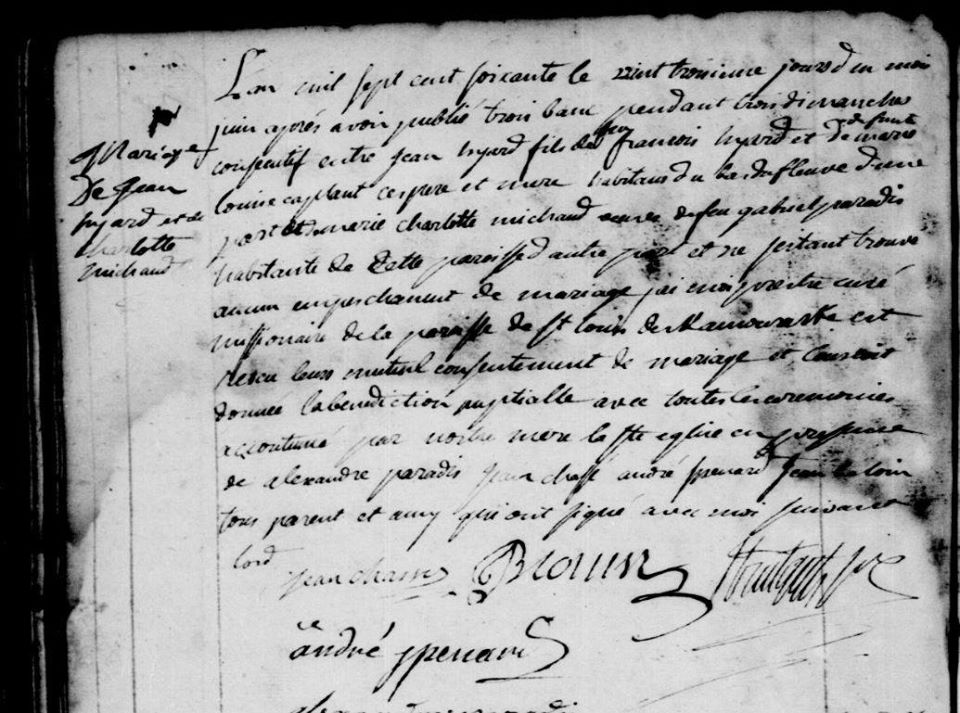 Mariage
De Jean
hyard et de
charlotte
michaud
L'an mil sept cent soixante le vint troisieme jour du mois
juin aprés avoir publié trois banc pendant trois dimanche
consecutif entre jean hyard fils de feu francois hyard et de defunte marie
louise caplant ces pere et mere habitans du bas du fleuve d'une
part et de marie charlotte michaud veuve de feu gabriel paradis
habitante de cette paroisse d autre part et ne s'estant trouvé
aucun empeschement de mariage j'ai moi prestre curé
missionaire de la paroisse de st louis de Kamouraska est
rescu leurs mutuel consentement de mariage et leur ait
donnée la benediction nuptialle avec toutes les ceremonies
accoutumé par nostre mere la ste eglise en presence
de alexandre paradis jean chassé andré spenard jean
tous parent et amy qui ont signé avec moi suivant
lord
jean chassé
andré spenard